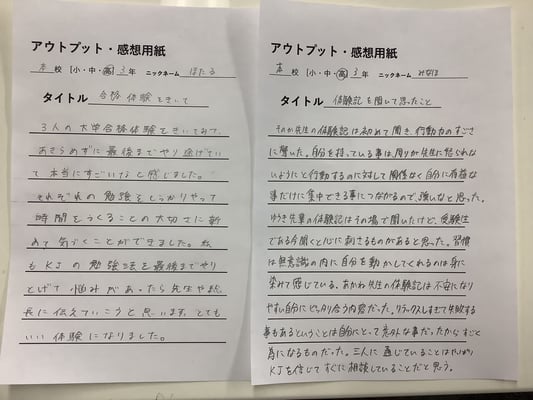 アウトプット・感想用紙
本 校 [小・中・高] 3年 ニックネーム ほたる
タイトル 合格体験をきいて
3人の大学合格体験をきいてみて、
あきらめずに最後までやり遂げてい
て本当にすごいなと感じました。
それぞれの勉強をしっかりやって
時間をつくることの大切さに改
めて気づくことができました。私
もKJの勉強法を最後までやり
とげて悩みがあったら先生や塾
長に伝えていこうと思います。とても
いい体験になりました。
アウトプット・感想用紙
本 校 [小・中・高] 3年 ニックネーム みなほ
タイトル 体験記を聞いて思ったこと
先生の体験記は初めて聞き、行動力のすごさ
に驚いた。自分を持っている事は、周りや先生に怒られな
いようにと行動するのに対して関係なく自分に有益な
事だけに集中できる事につながるので、強いなと思った。
ゆうき先輩の体験記はその場で聞いたけど、受験生
である今聞くと心に刺さるものがあると思った。習慣
は無意識の内に自分を動かしてくれるのは身に
染みて感じている。あかね先生の体験記は不安になり
やすい自分にピッタリ合う内容だった。リラックスしすぎて失敗する
事もあるということは自分にとって意外な事だったからすごく
為になるものだった。三人に通じていることはやっぱり
KJを信じてすぐに相談していることだと思う。